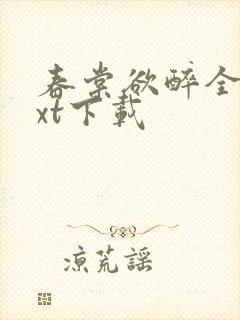 春棠欲醉全
xt下載
涼荒謠